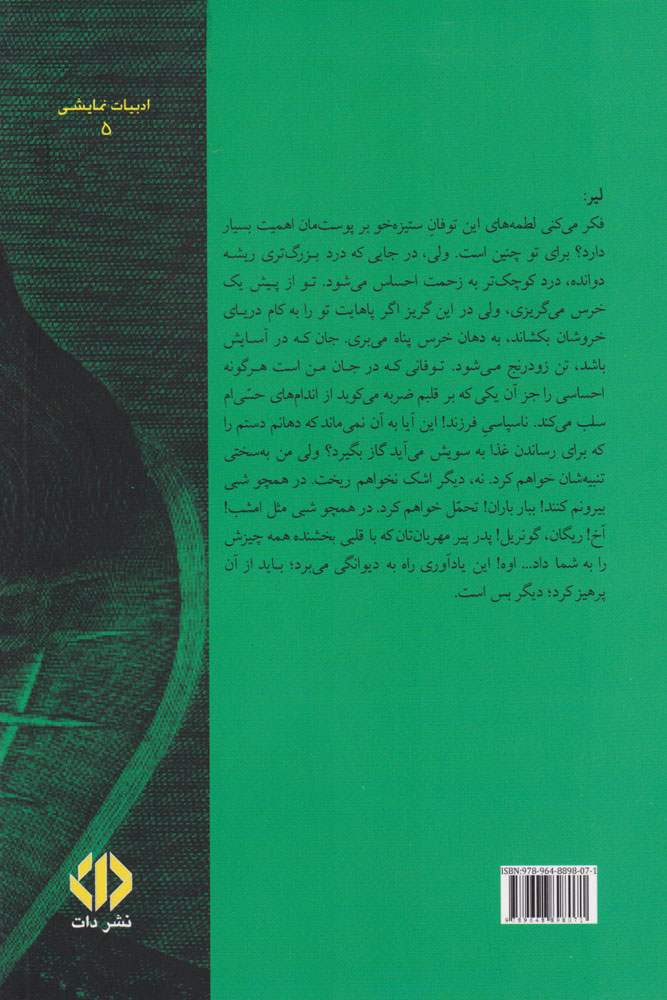 ادبیات نمایشی
۵
لیر:
فکر می‌کنی لطمه‌های این توفانِ ستیزه‌خو بر پوست‌مان اهمیت بسیار
دارد؟ برای تو چنین است. ولی، در جایی که درد بزرگ‌تری ریشه
دوانده، درد کوچک‌تر به زحمت احساس می‌شود. تو از پیش یک
خرس می‌گریزی، ولی در این گریز اگر پاهایت تو را به کام دریای
خروشان بکشاند، به دهان خرس پناه می‌بری. جان که در آسایش
باشد، تن زودرنج می‌شود. توفانی که در جان من است هرگونه
احساسی را جز آن یکی که بر قلبم ضربه می‌کوبد از اندام‌های حسّی‌ام
سلب می‌کند. ناسپاسیِ فرزند! این آیا به آن نمی‌ماند که دهانم دستم را
که برای رساندن غذا به سویش می‌آید گاز بگیرد؟ ولی من به‌سختی
تنبیه‌شان خواهم کرد. نه، دیگر اشک نخواهم ریخت. در همچو شبی
بیرونم کنند! ببار باران! تحمّل خواهم کرد. در همچو شبی مثل امشب!
آخ! ریگان، گونریل! پدر پیر مهربان‌تان که با قلبی بخشنده همه چیزش
را به شما داد... اوه! این یادآوری راه به دیوانگی می‌برد؛ باید از آن
پرهیز کرد؛ دیگر بس است.
ISBN:978-964-8898-07-1
9789648898071
دات
نشر دات